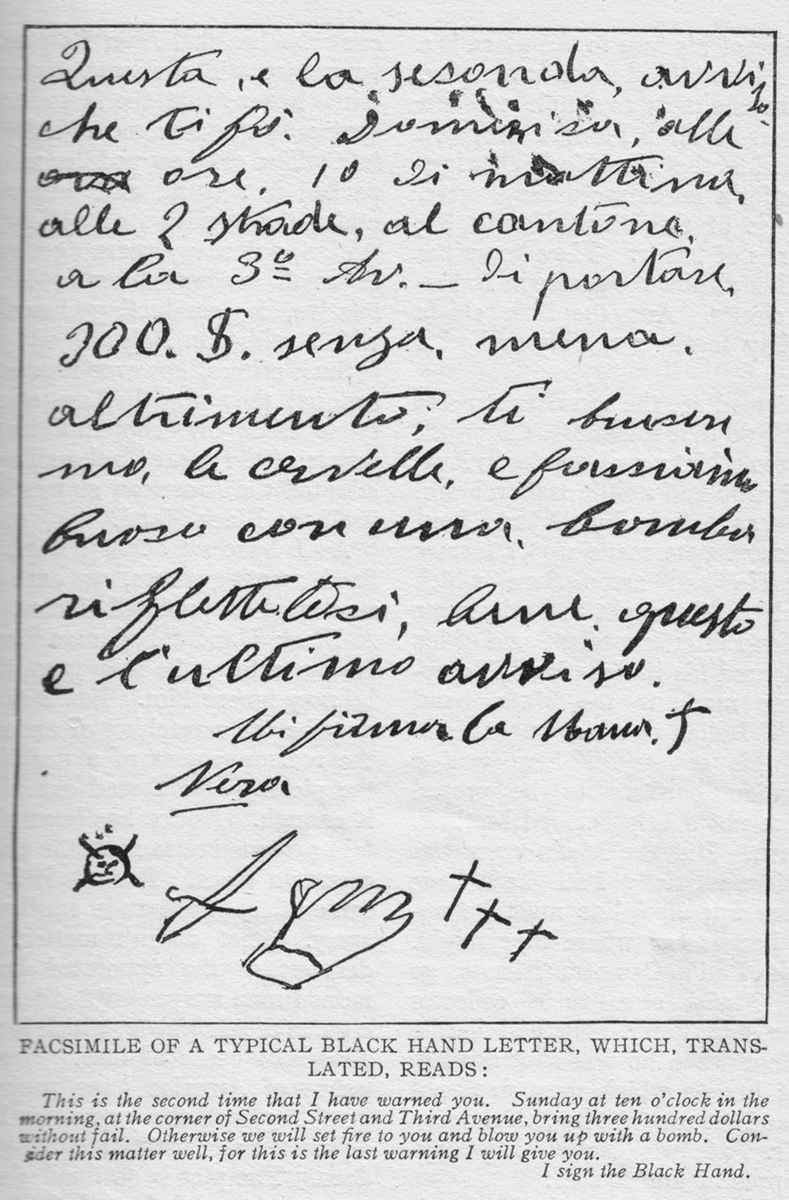 Questa, e la seconda, avviso
che ti fo. Dominica, alle
ore, 10 di mattina,
alle 2 strade, al cantone,
a la 3º Av. — di portare,
300. $. senza, mena.
altrimento, ti
mo, le cervelle, e facciamo
con una, bomba
riflettetosi, bene, questo
e l'ultimo avviso.
Mi firmo la Mano. †
Nera
FACSIMILE OF A TYPICAL BLACK HAND LETTER, WHICH, TRANS-
LATED, READS:
This is the second time that I have warned you. Sunday at ten o'clock in the
morning, at the corner of Second Street and Third Avenue, bring three hundred dollars
without fail. Otherwise we will set fire to you and blow you up with a bomb. Con-
sider this matter well, for this is the last warning I will give you.
I sign the Black Hand.